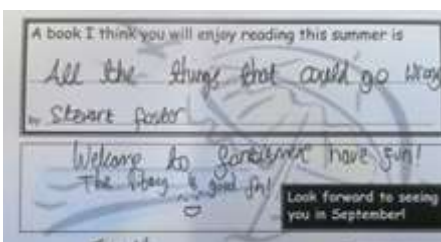 A book I think you will enjoy reading this summer is
All the things that could go wrong
by Stewart Foster
Welcome to have fun!
The is good fun!
Look forward to seeing
you in September!